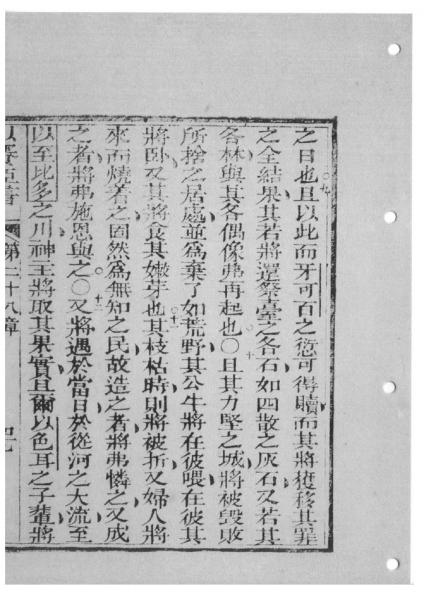 之日也且以此而牙可百之愆可得贖而其將獲移其罪
之全結果其若將還祭臺之各石如四散之灰石又若其
各林與其各偶像弗再起也○且其力堅之城將被毀敗
所捨之居處並爲棄了如荒野其公牛將在彼喂在彼其
將卧又其將食其嫩芽也其枝枯時則將被折又婦人將
來而燒着之因然爲無知之民故造之者將弗憐之又成
之者將弗施恩與之○又將遇於當日於從河之大流至
以至比多之川神王將取其果實且爾以色耳之子輩將
第二十八章